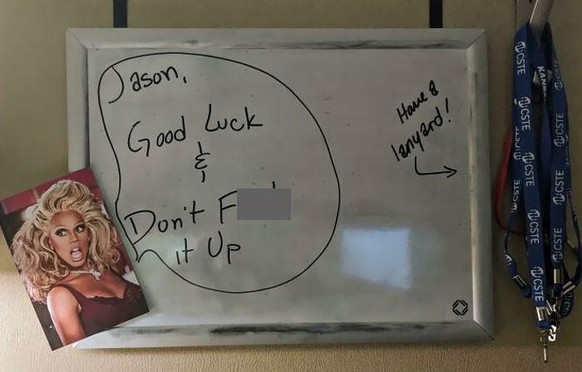 Jason,
Good Luck
&
Don't F
it Up
Have a
lanyard!
CSTE
CSTE
CSTE
CSTE
CSTE
CSTE